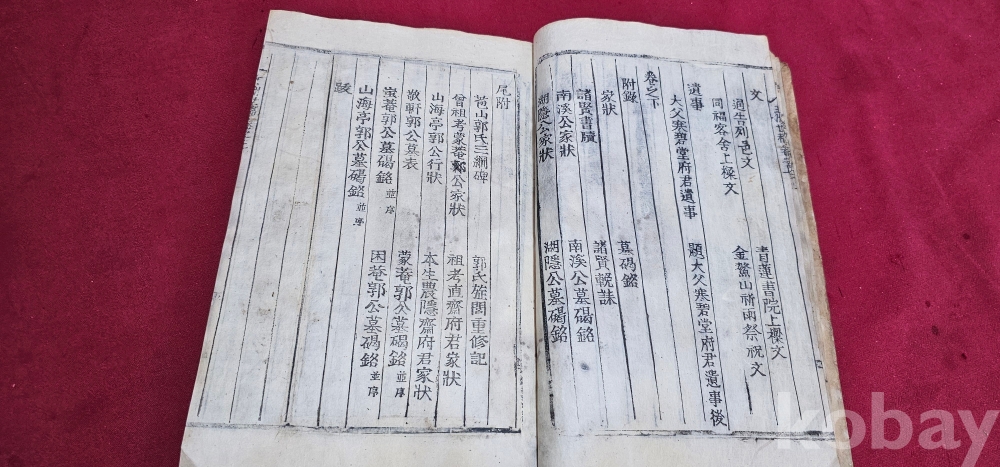 文
通告列邑文
青蓮書院上樑文
同福客舍上樑文
金鰲山祈雨祭祝文
遺事
大父寒碧堂府君遺事
題大父寒碧堂府君遺事後
卷之下
附錄
家狀
墓碣銘
諸賢書牘
諸賢輓誄
南溪公家狀
南溪公墓碣銘
湖隱公家狀
湖隱公墓碣銘
尾附
苞山郭氏三綱碑
郭氏旌閭重修記
曾祖考蒙菴郭公家狀
祖考直齋府君家狀
山海亭郭公行狀
本生農隱齋府君家狀
敬軒郭公墓表
蒙菴郭公墓碣銘 並序
蛩菴郭公墓碣銘 並序
困菴郭公墓碣銘 並序
山海亭郭公墓碣銘 並序
跋
kobay